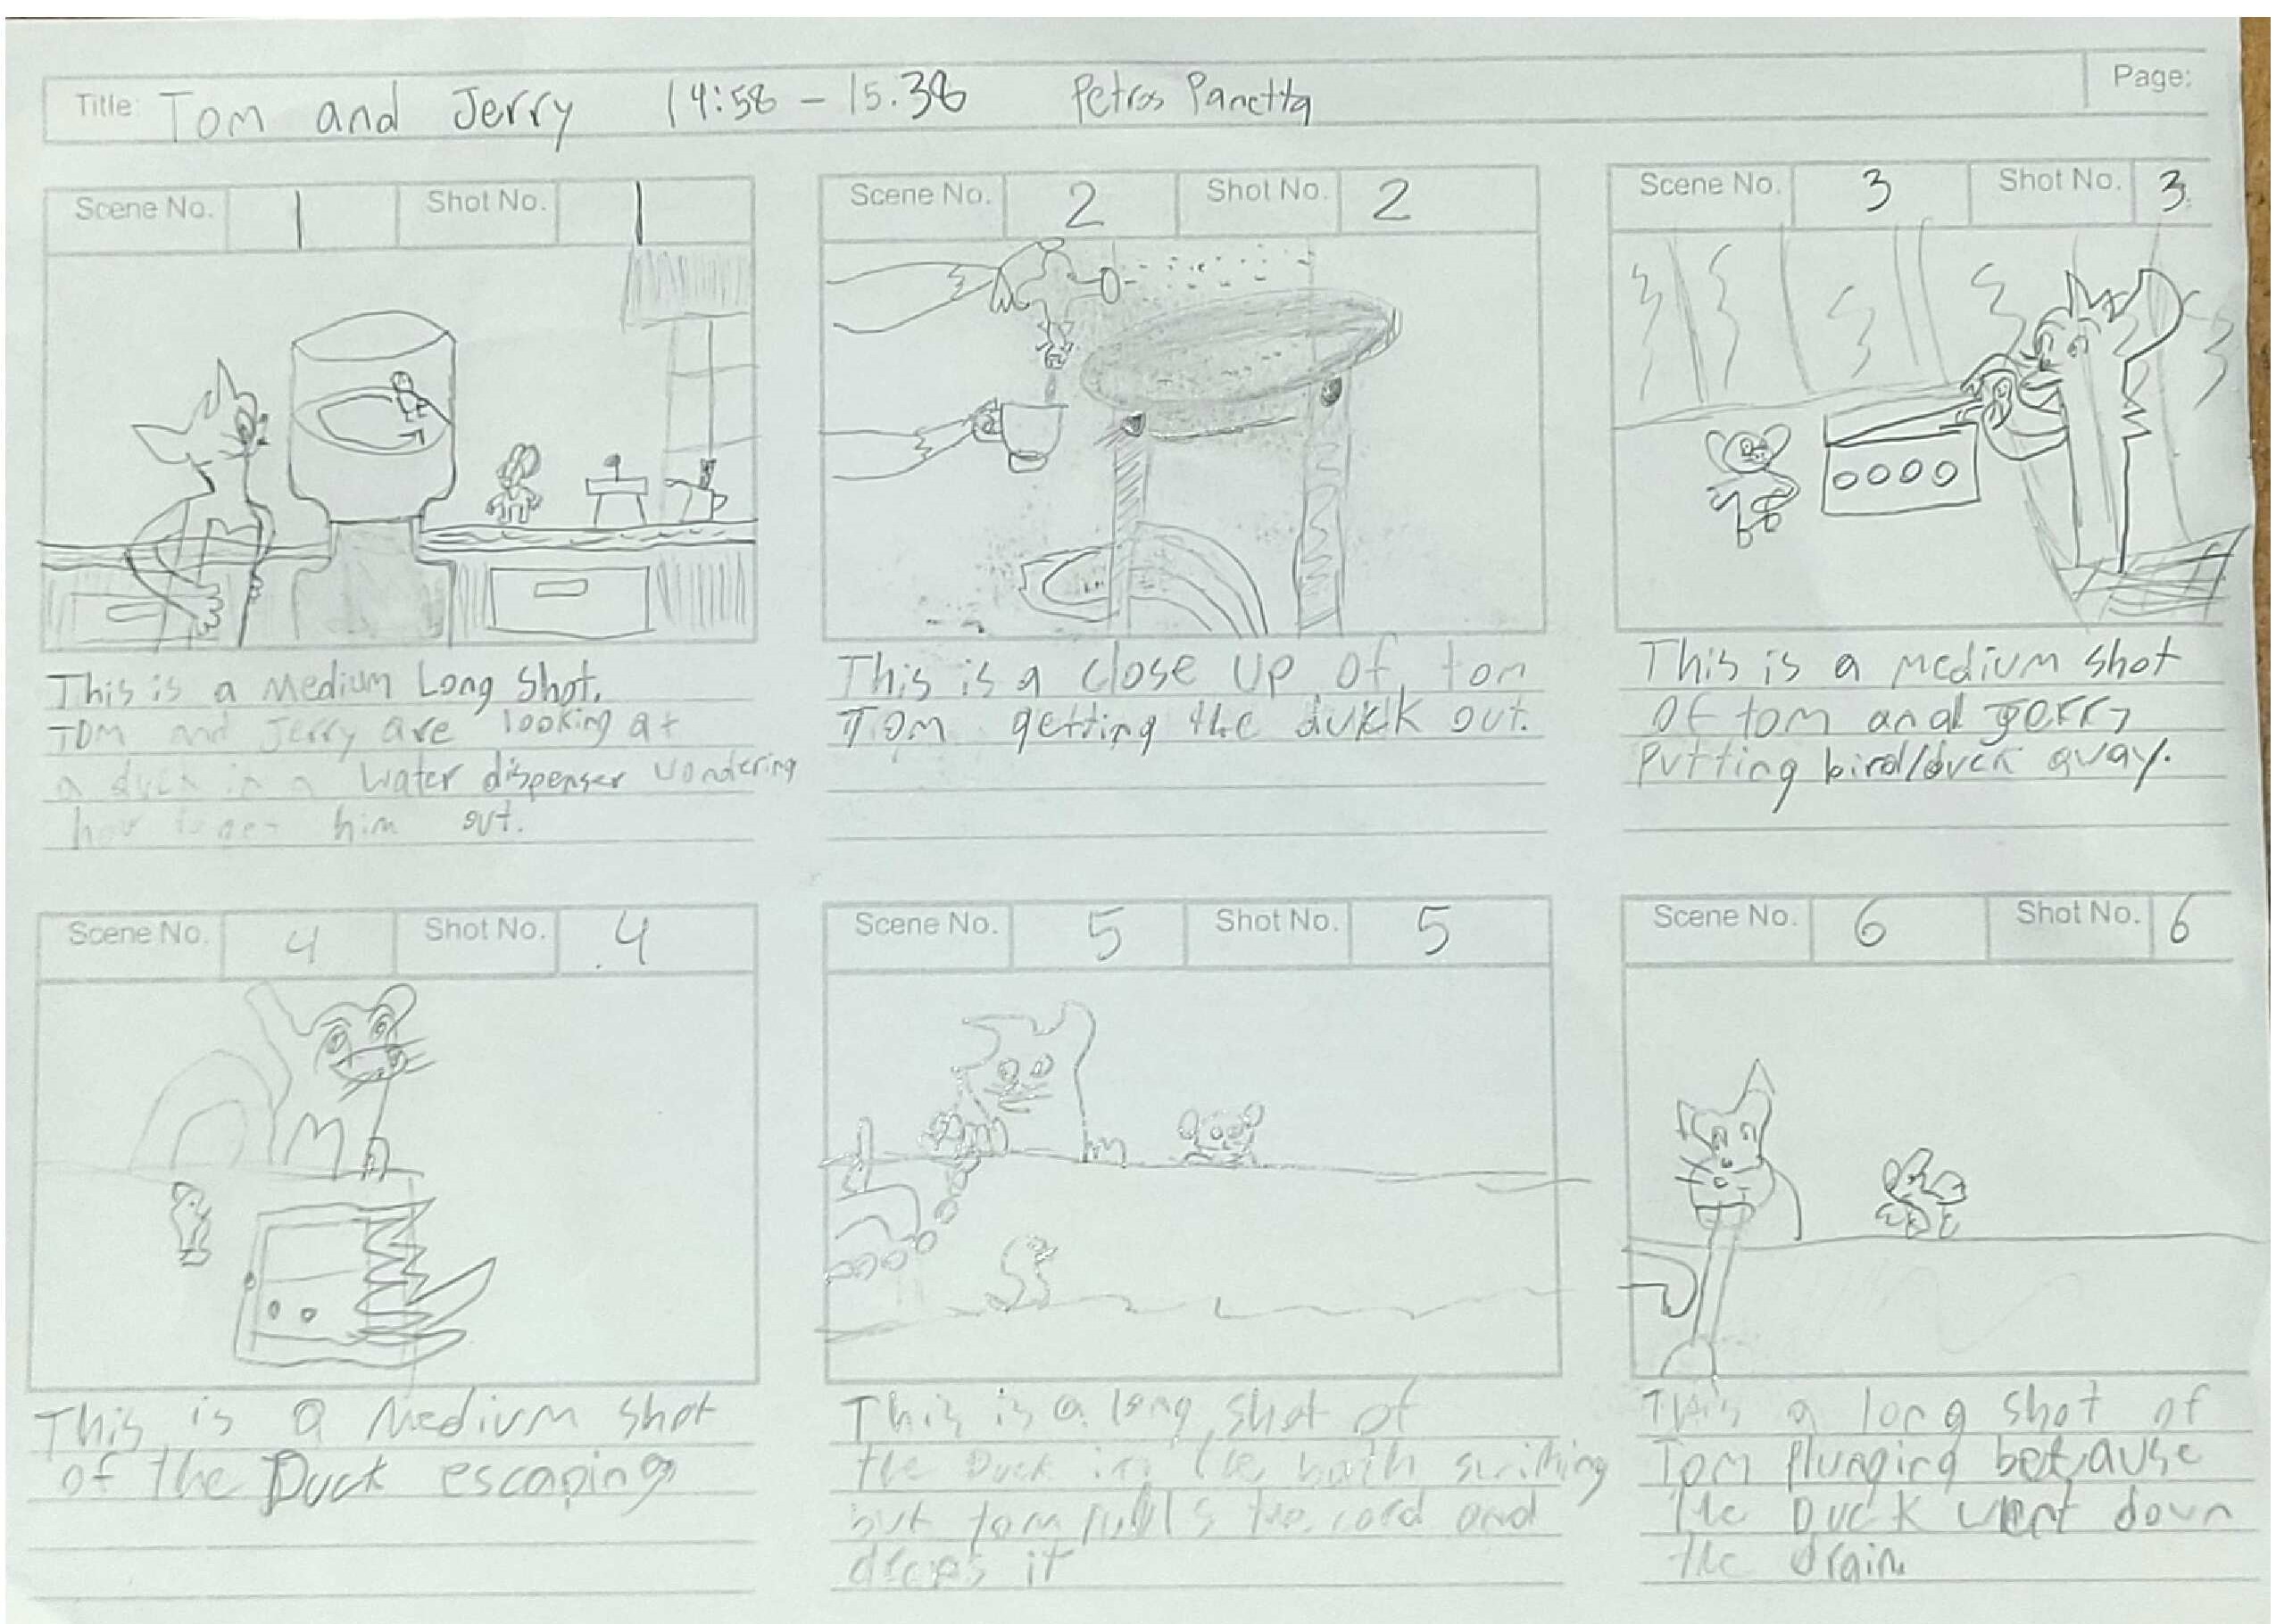 Title: Tom and Jerry 14:58 - 15.38 Petros Panetta Page:
Scene No. 1 Shot No. 1
This is a Medium Long Shot.
TOM and Jerry are looking at
a duck in a Water dispenser wondering
how to get him out.
Scene No. 2 Shot No. 2
This is a close up of tom
Tom getting the duck out.
Scene No. 3 Shot No. 3
This is a medium shot
of tom and Jerry
putting bird/duck away.
Scene No. 4 Shot No. 4
This is a Medium shot
of the Duck escaping
Scene No. 5 Shot No. 5
This is a long shot of
the Duck in the bath
but tom pulls the cord and
drops it
Scene No. 6 Shot No. 6
This a long shot of
Tom plunging because
the Duck went down
the drain.